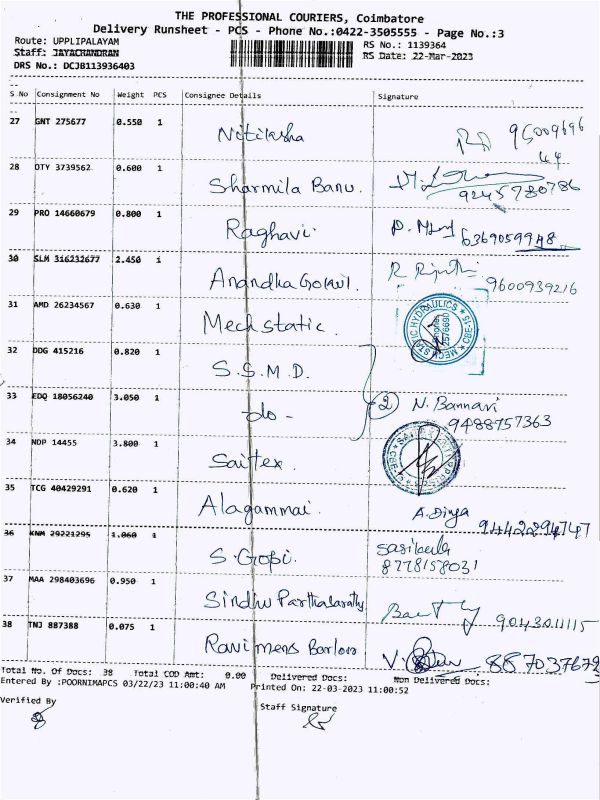 THE PROFESSIONAL COURIERS, Coimbatore
Delivery Runsheet - PCS - Phone No.:0422-3505555 - Page No.:3
Route: UPPLIPALAYAM RS No.: 1139364
Staff: JAYACHANDRAN RS Date: 22-Mar-2023
DRS No.: DCJB113936403
S No Consignment No Weight PCS Consignee Details Signature
27 GNT 275677 0.550 1 Nitiksha 95009696
44
28 OTY 3739562 0.600 1 Sharmila Banu. 9245780786
29 PRO 14660679 0.800 1 Raghavi. 6369059948
30 SLM 316232677 2.450 1 Anandha Gokul. 9600939216
31 AMD 26234567 0.630 1 Mech static. MECH STATIC HYDRAULICS CBE-15
32 DDG 415216 0.820 1 S.S.M.D.
33 EDQ 18056240 3.050 1 -do- 2 N. Bannari
9488757363
34 NDP 14455 3.800 1 Saitex.
35 TCG 40429291 0.620 1 Alagammai. A. Divya 9442294747
36 KNM 29221295 1.060 1 S. Gopi. Sasikala
8778158031
37 MAA 298403696 0.950 1 Sindhu Parthasarathy 9043011115
38 TNJ 887388 0.075 1 Ravi mens Barloro 887037673
Total No. Of Docs: 38 Total COD Amt: 0.00 Delivered Docs: Non Delivered Docs:
Entered By :POORNIMAPCS 03/22/23 11:00:40 AM Printed On: 22-03-2023 11:00:52
Verified By Staff Signature